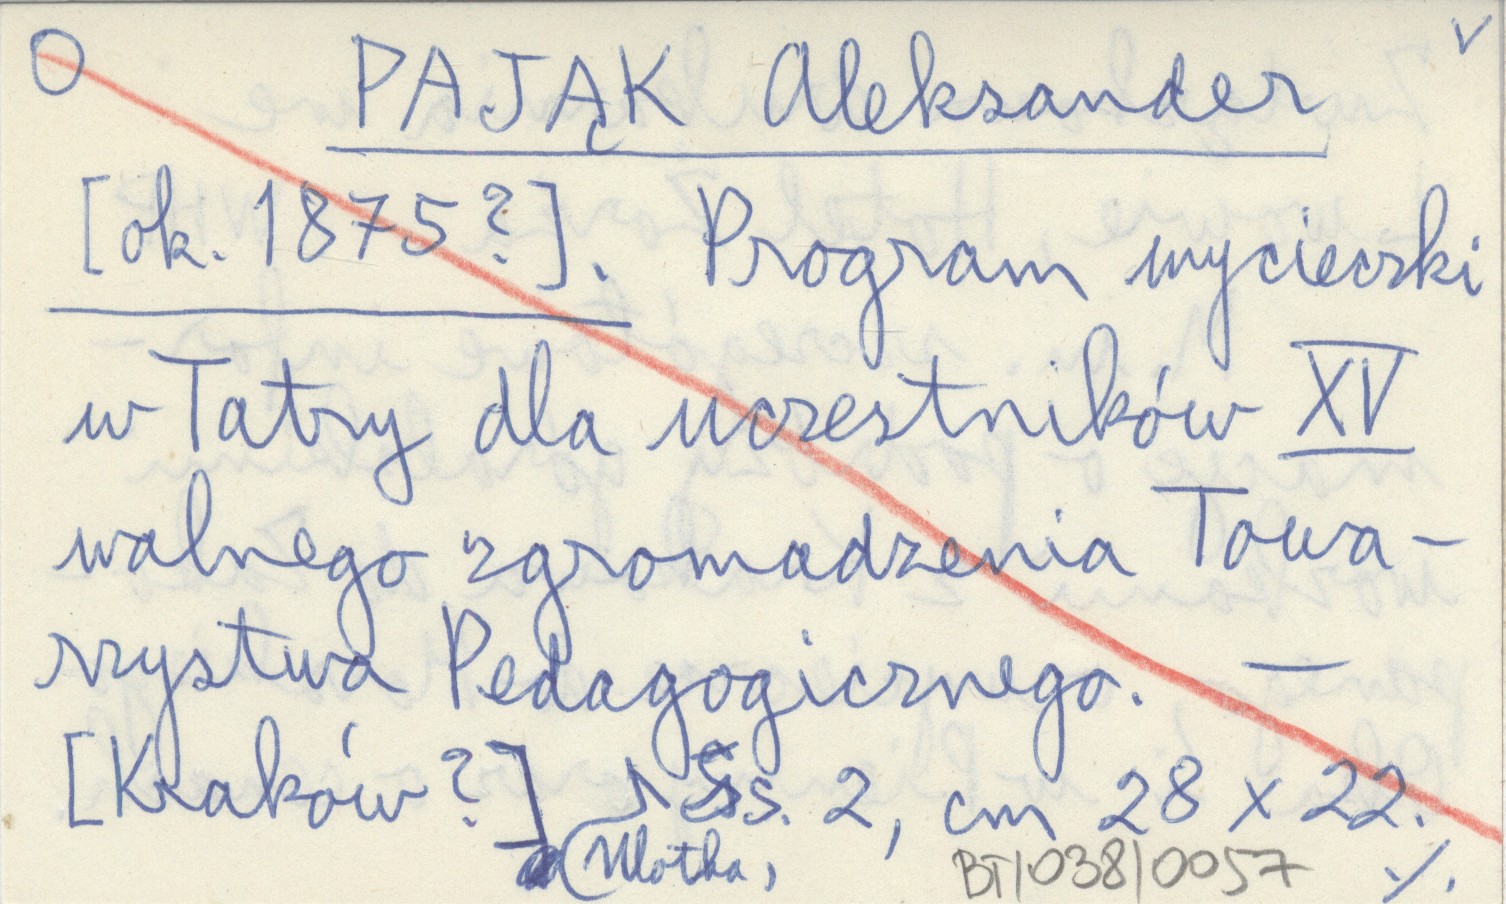 O PAJĄK Aleksander v
[ok. 1875?]. Program wycieczki
w Tatry dla uczestników XV
walnego zgromadzenia Towa-
rzystwa Pedagogicznego. —
[Kraków?] Ss. 2, cm 28 x 22.
Ulotka,
BT/038/0057 ./.